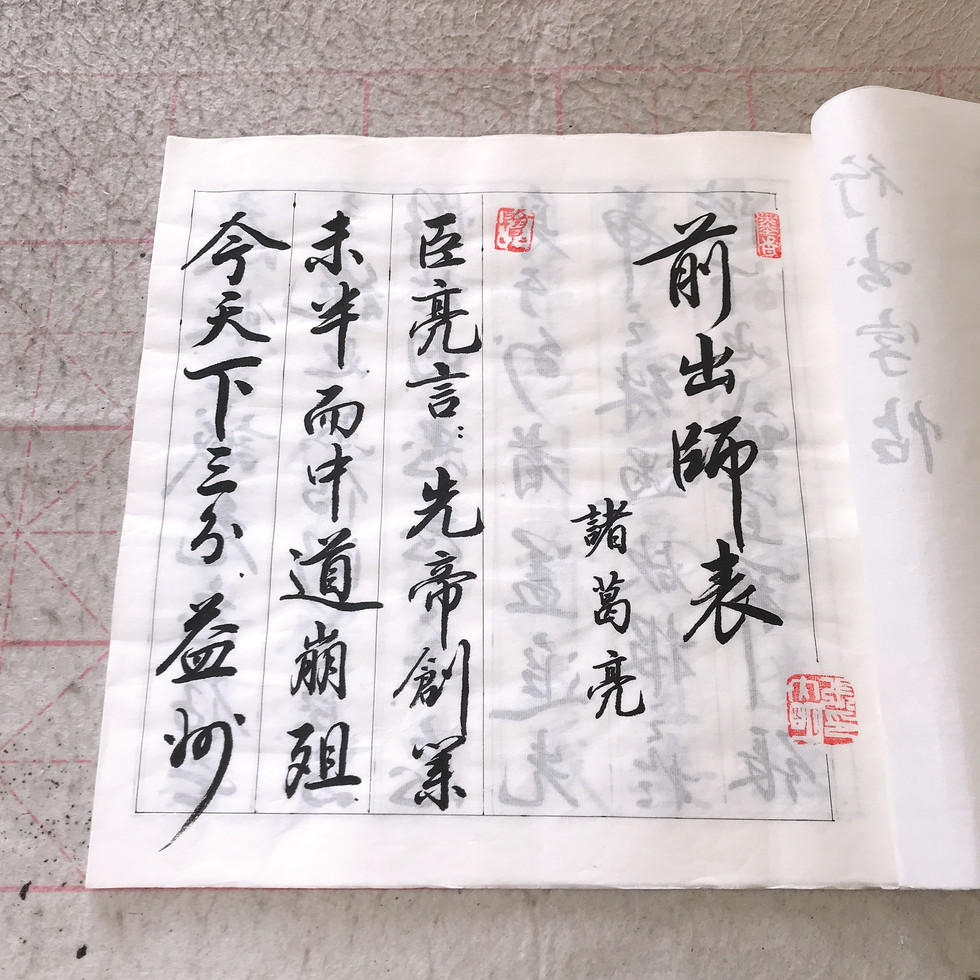 前出師表
諸葛亮
臣亮言：先帝創業
未半而中道崩殂
今天下三分，益州
行書字帖